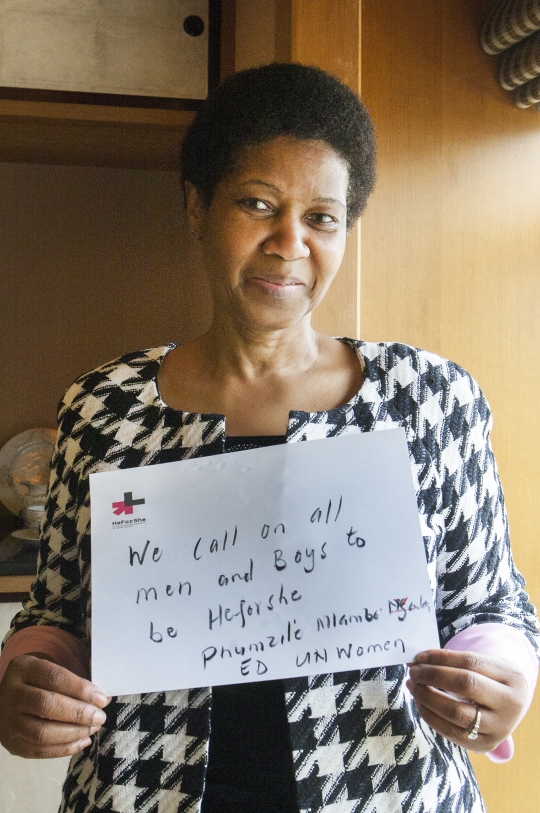 HeForShe
We call on all
men and Boys to
be Heforshe
Phumzile Mlambo-
ED UN Women